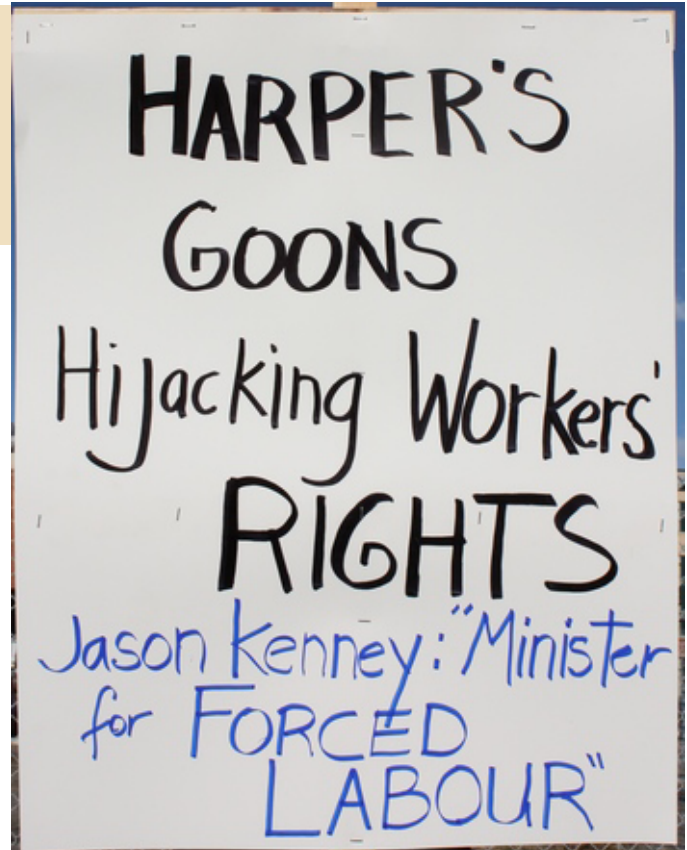 HARPER'S
GOONS
Hijacking Workers'
RIGHTS
Jason Kenney: "Minister
for FORCED
LABOUR"